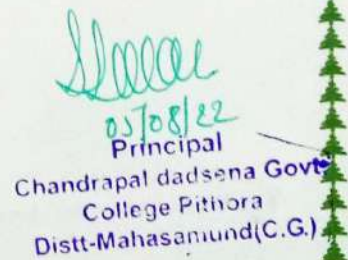 05/08/22
Principal
Chandrapal dadsena Govt
College Pithora
Distt-Mahasamund(C.G.)